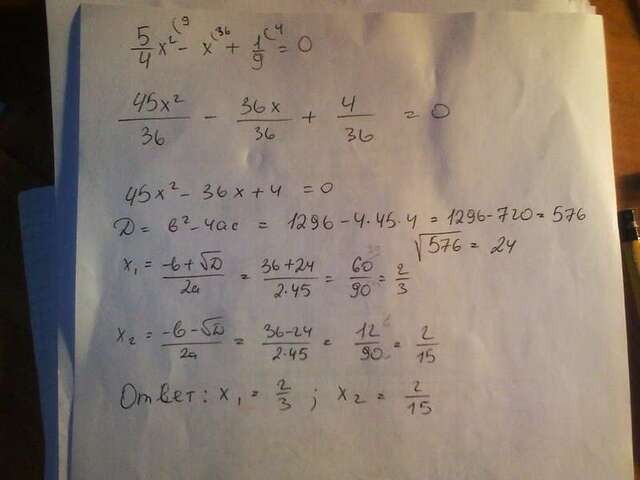 5/4 x² (9 - x (36 + 1/9 (4 = 0
45x²/36 - 36x/36 + 4/36 = 0
45x² - 36x + 4 = 0
D = в² - 4ac = 1296 - 4·45·4 = 1296 - 720 = 576
√576 = 24
x₁ = -в + √D/2a = 36+24/2·45 = 60/90 = 2/3
x₂ = -в - √D/2a = 36-24/2·45 = 12/90 = 2/15
Ответ: x₁ = 2/3 ; x₂ = 2/15